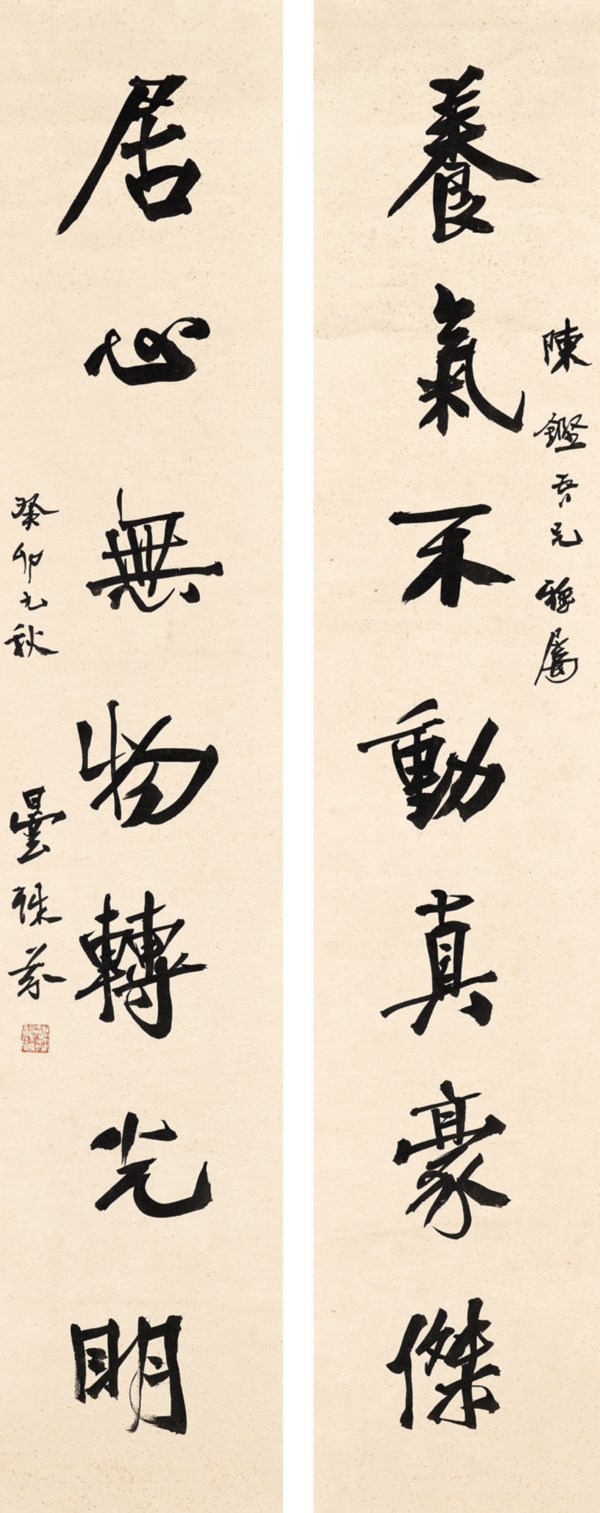 陳鏗吾兄雅屬
養氣不動真豪傑
居心無物轉光明
癸卯九秋
曇